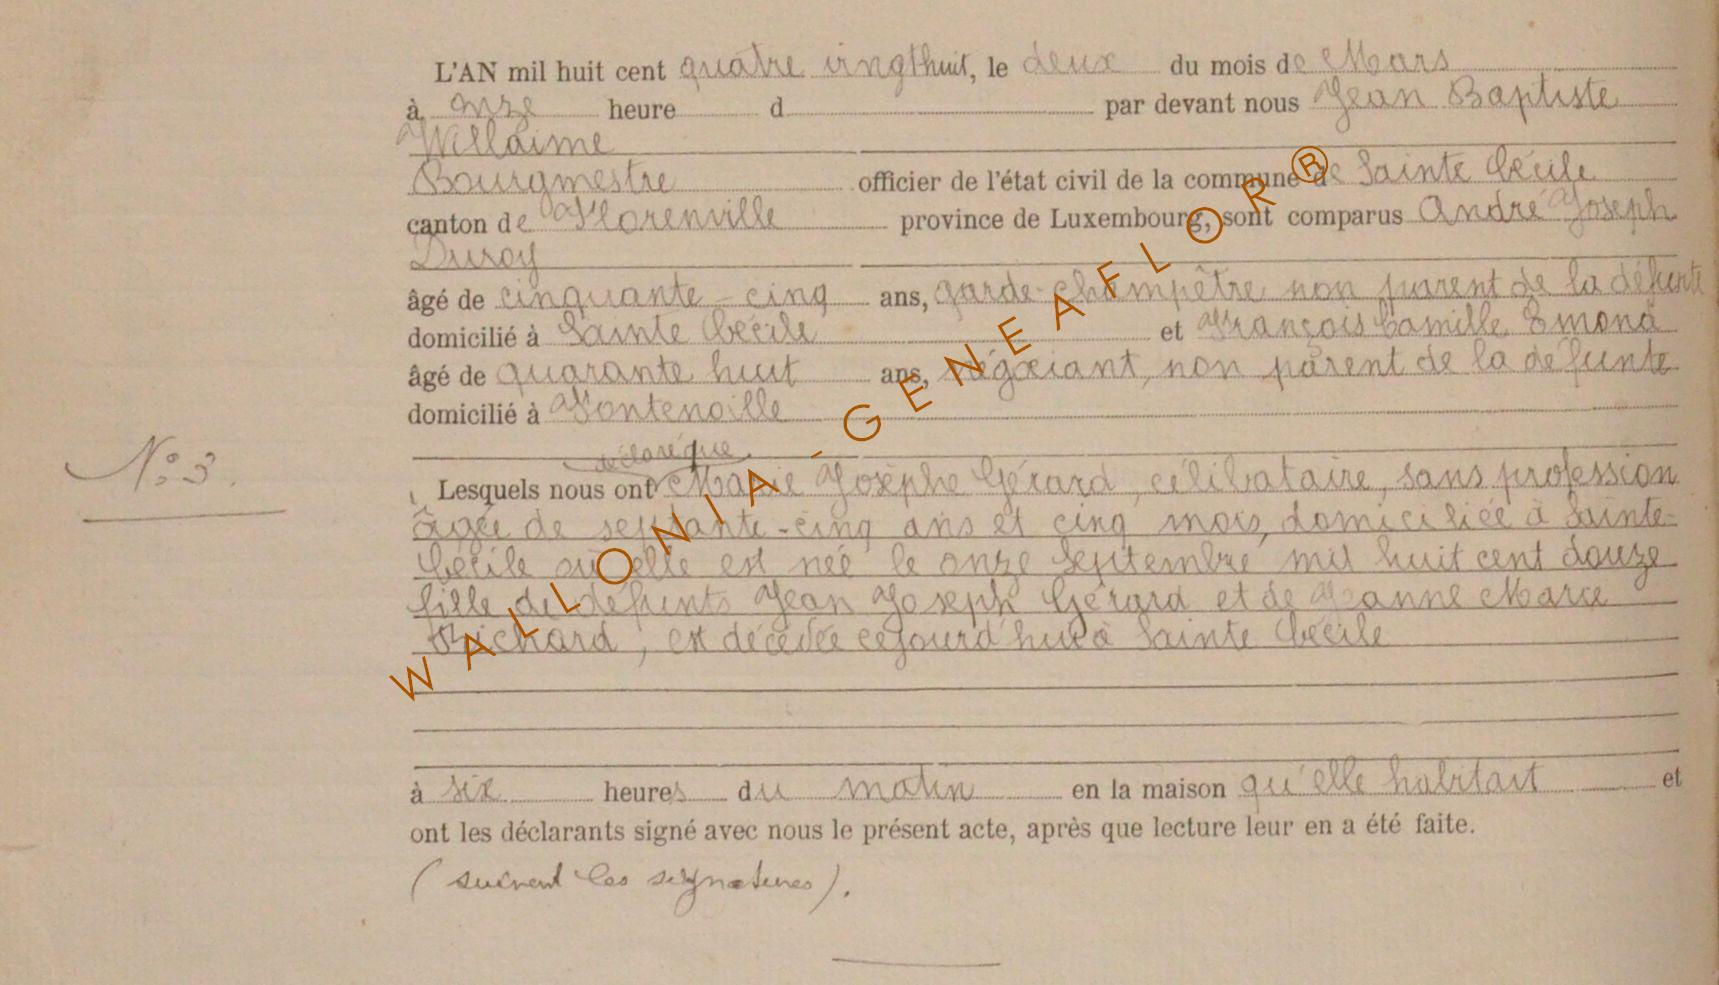 L'AN mil huit cent quatre vingthuit, le deux du mois de Mars
à onze heure d par devant nous Jean Baptiste
Willaime
Bourgmestre officier de l'état civil de la commune de Sainte Cécile
canton de Florenville province de Luxembourg, sont comparus André Joseph
Duroy
âgé de cinquante-cinq ans, garde-champêtre non parent de la défunte
domicilié à Sainte Cécile et François Camille Emond
âgé de quarante huit ans, négociant, non parent de la défunte
domicilié à Fontenoille
déclaré que
N.° 3.
Lesquels nous ont Marie Josèphe Gérard, célibataire, sans profession
âgée de septante-cinq ans et cinq mois, domiciliée à Sainte-
Cécile où elle est née le onze Septembre mil huit cent douze
fille de défunts Jean Joseph Gérard et de Jeanne Marie
Richard, est décédée cejourd'hui à Sainte Cécile
à six heures du matin en la maison qu'elle habitait et
ont les déclarants signé avec nous le présent acte, après que lecture leur en a été faite.
(suivent les signatures).
WALLONIA-GENEAFLOR®